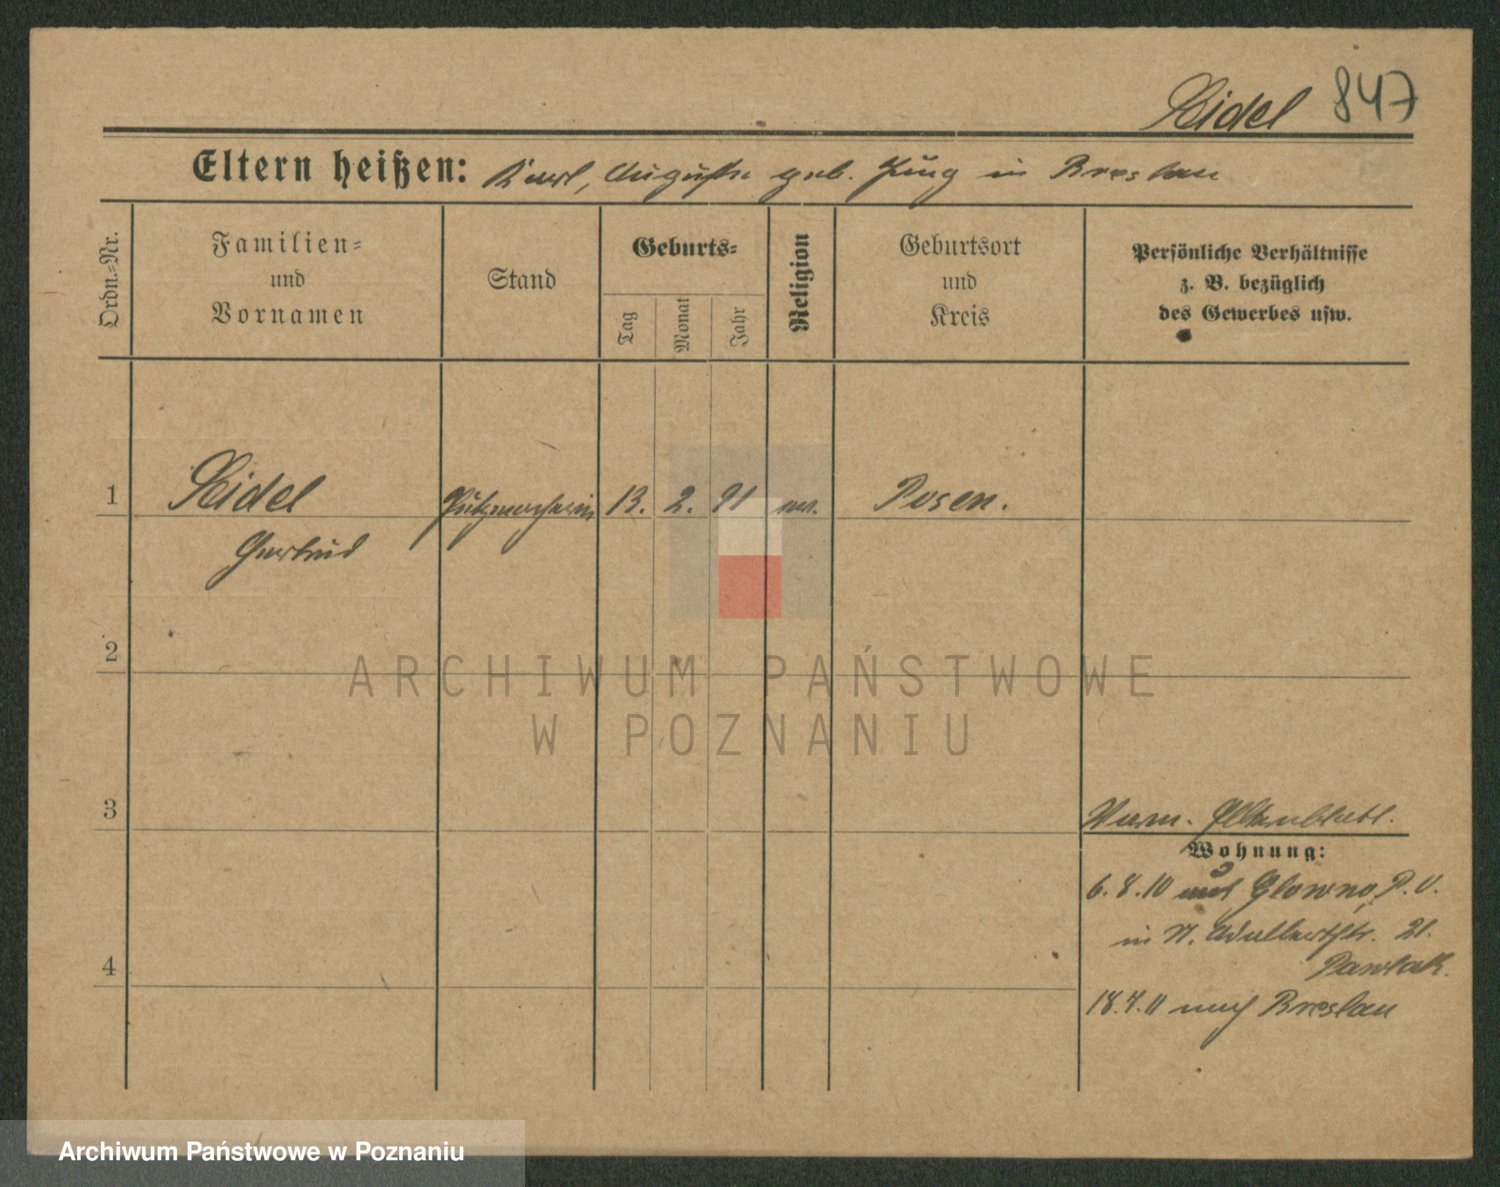 Seidel 847
Eltern heißen: Karl, Auguste geb. Jung in Breslau
Ordn.-Nr.
Familien-
und
Vornamen
Stand
Geburts-
Tag
Monat
Jahr
Religion
Geburtsort
und
Kreis
Persönliche Verhältnisse
z. B. bezüglich
des Gewerbes usw.
1 Seidel Putzmacherin 13. 2. 91 ev. Posen.
Gertrud
2
3
Wohnung:
6.8.10 aus Glowno, P. O.
in St. Adalbertstr. 21.
Pawlak.
4
18.7.11 nach Breslau
ARCHIWUM PAŃSTWOWE
W POZNANIU
Archiwum Państwowe w Poznaniu